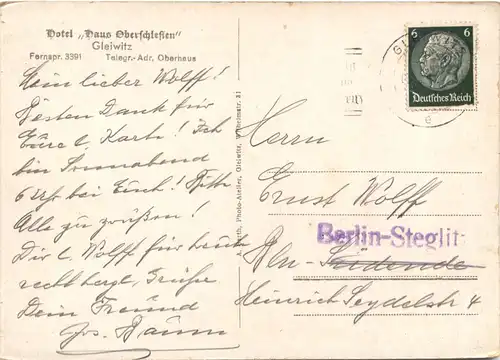 Hotel „Haus Oberschlesien"
Gleiwitz
Fernspr. 3391 Telegr.-Adr. Oberhaus
Mein lieber Wolff!
Besten Dank für
Eure l. Karte! Ich
bin Sonnabend
6 Uhr bei Euch! Bitte
Alle zu grüßen!
Dir l. Wolff für heute
recht herzl. Grüße
Dein Freund
Jos.
Photo-Atelier, Gleiwitz, Wilhelmstr. 21
6 6
Deutsches Reich
G
Herrn
Ernst Wolff
Berlin-Steglitz
Bln Südende
Heinrich Seydelstr 4